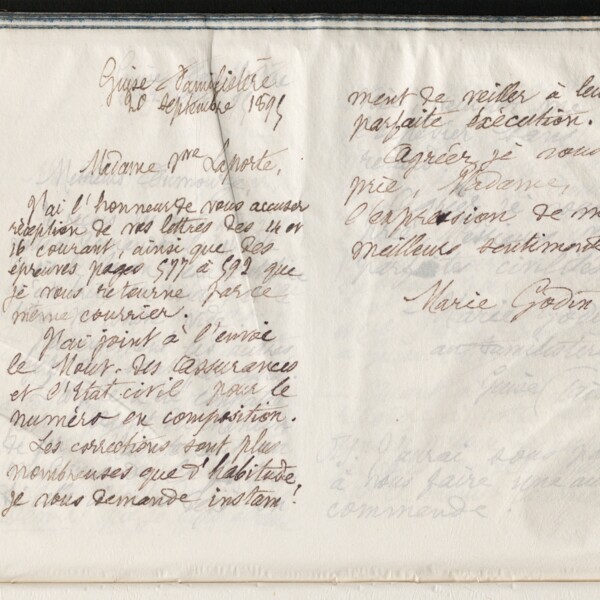 Guise Familistère
20 septembre 1895
Madame Vve Laporte,
J'ai l'honneur de vous accuser
réception de vos lettres des 14 et
16 courant, ainsi que des
épreuves pages 577 à 592 que
je vous retourne par ce
même courrier.
J'ai joint à l'envoi
le Mouvt. des Assurances
et l'Etat civil pour le
numéro en composition.
Les corrections sont plus
nombreuses que d'habitude
je vous demande instamt
ment de veiller à leur
parfaite exécution.
Agréer, je vous
prie, Madame,
l'expression de m
meilleurs sentiments
Marie Godin
à vous faire une au
commande.